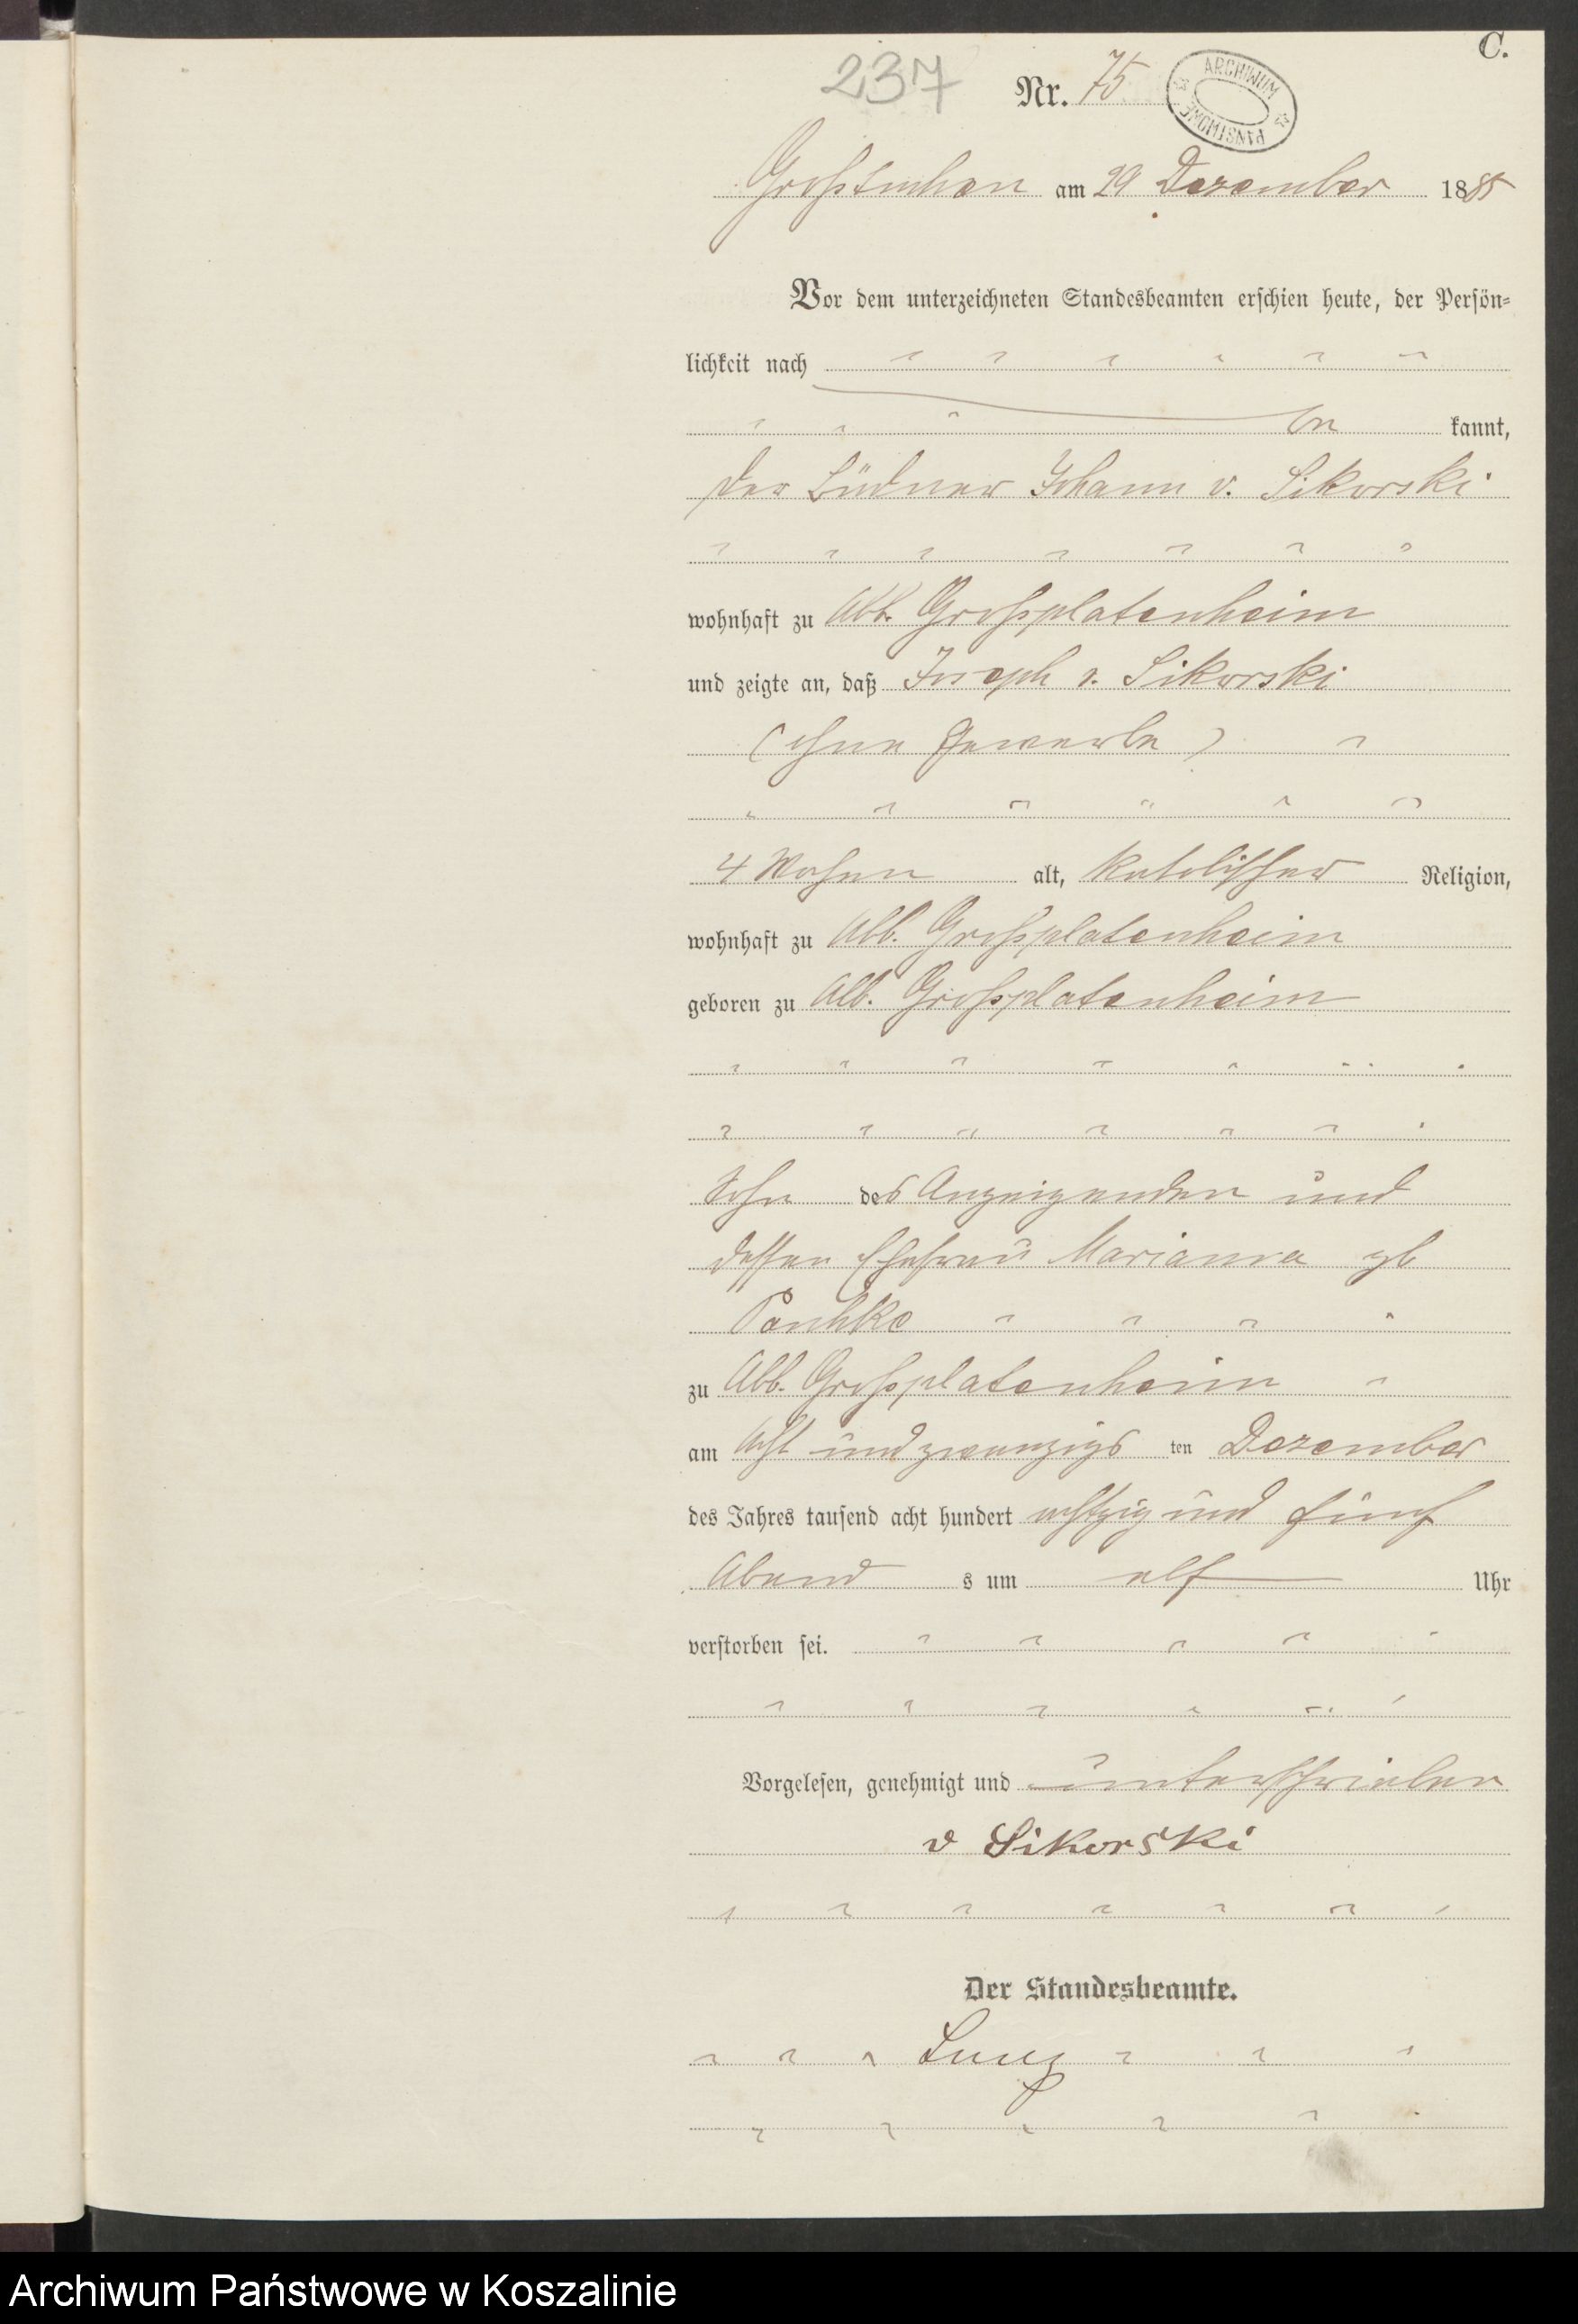 C.
237
Nr. 75
ARCHIWUM PAŃSTWOWE
Großtuchen am 29 Dezember 1885
Vor dem unterzeichneten Standesbeamten erschien heute, der Persön=
lichkeit nach
be kannt,
der Büdner Johann v. Sikorski
wohnhaft zu Abb. Großplatenheim
und zeigte an, daß Joseph v. Sikorski
(ohne Gewerbe)
4 Wochen alt, katolischer Religion,
wohnhaft zu Abb. Großplatenheim
geboren zu Abb. Großplatenheim
Sohn des Anzeigenden und
dessen Ehefrau Marianna gb
zu Abb. Großplatenheim
am Acht und zwanzigs ten Dezember
des Jahres tausend acht hundert achtzig und fünf
Abend s um elf Uhr
verstorben sei.
Vorgelesen, genehmigt und unterschrieben
v Sikorski
Der Standesbeamte.
Archiwum Państwowe w Koszalinie